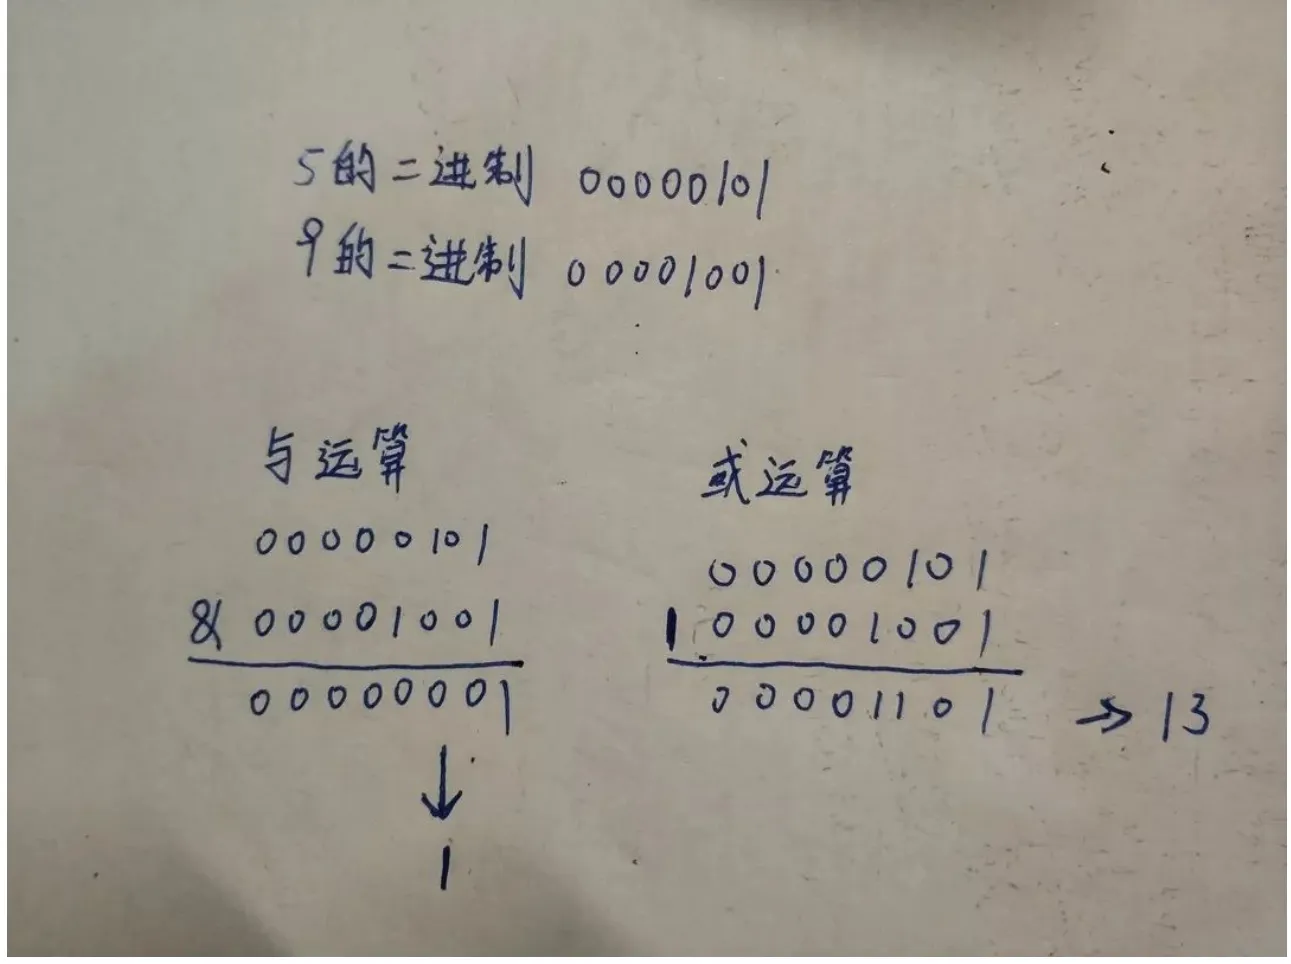 5的二进制 00000101
9的二进制 00001001
与运算
00000101
& 00001001
00000001
↓
1
或运算
00000101
| 00001001
00001101 → 13